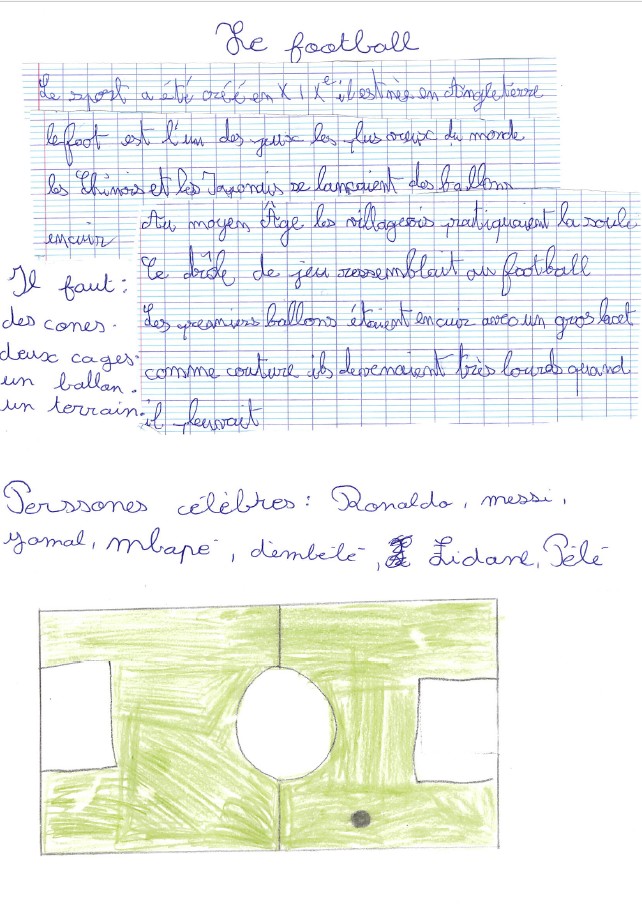 Le football
Le sport a été créé en XIXe il est née en Angleterre
le foot est l'un des jeux les plus vieux du monde
les Chinois et les Japonais se lançaient des ballons
en cuir
Au moyen Âge les villageois pratiquaient la soule
Ce drôle de jeu ressemblait au football
Les premiers ballons étaient en cuir avec un gros lacet
comme couture ils devenaient très lourds quand
il pleuvait
Il faut :
des cones.
deux cages.
un ballon.
un terrain.
Perssones célèbres : Ronaldo, messi,
yamal, mbapé, dembélé, Zidane, Pélé